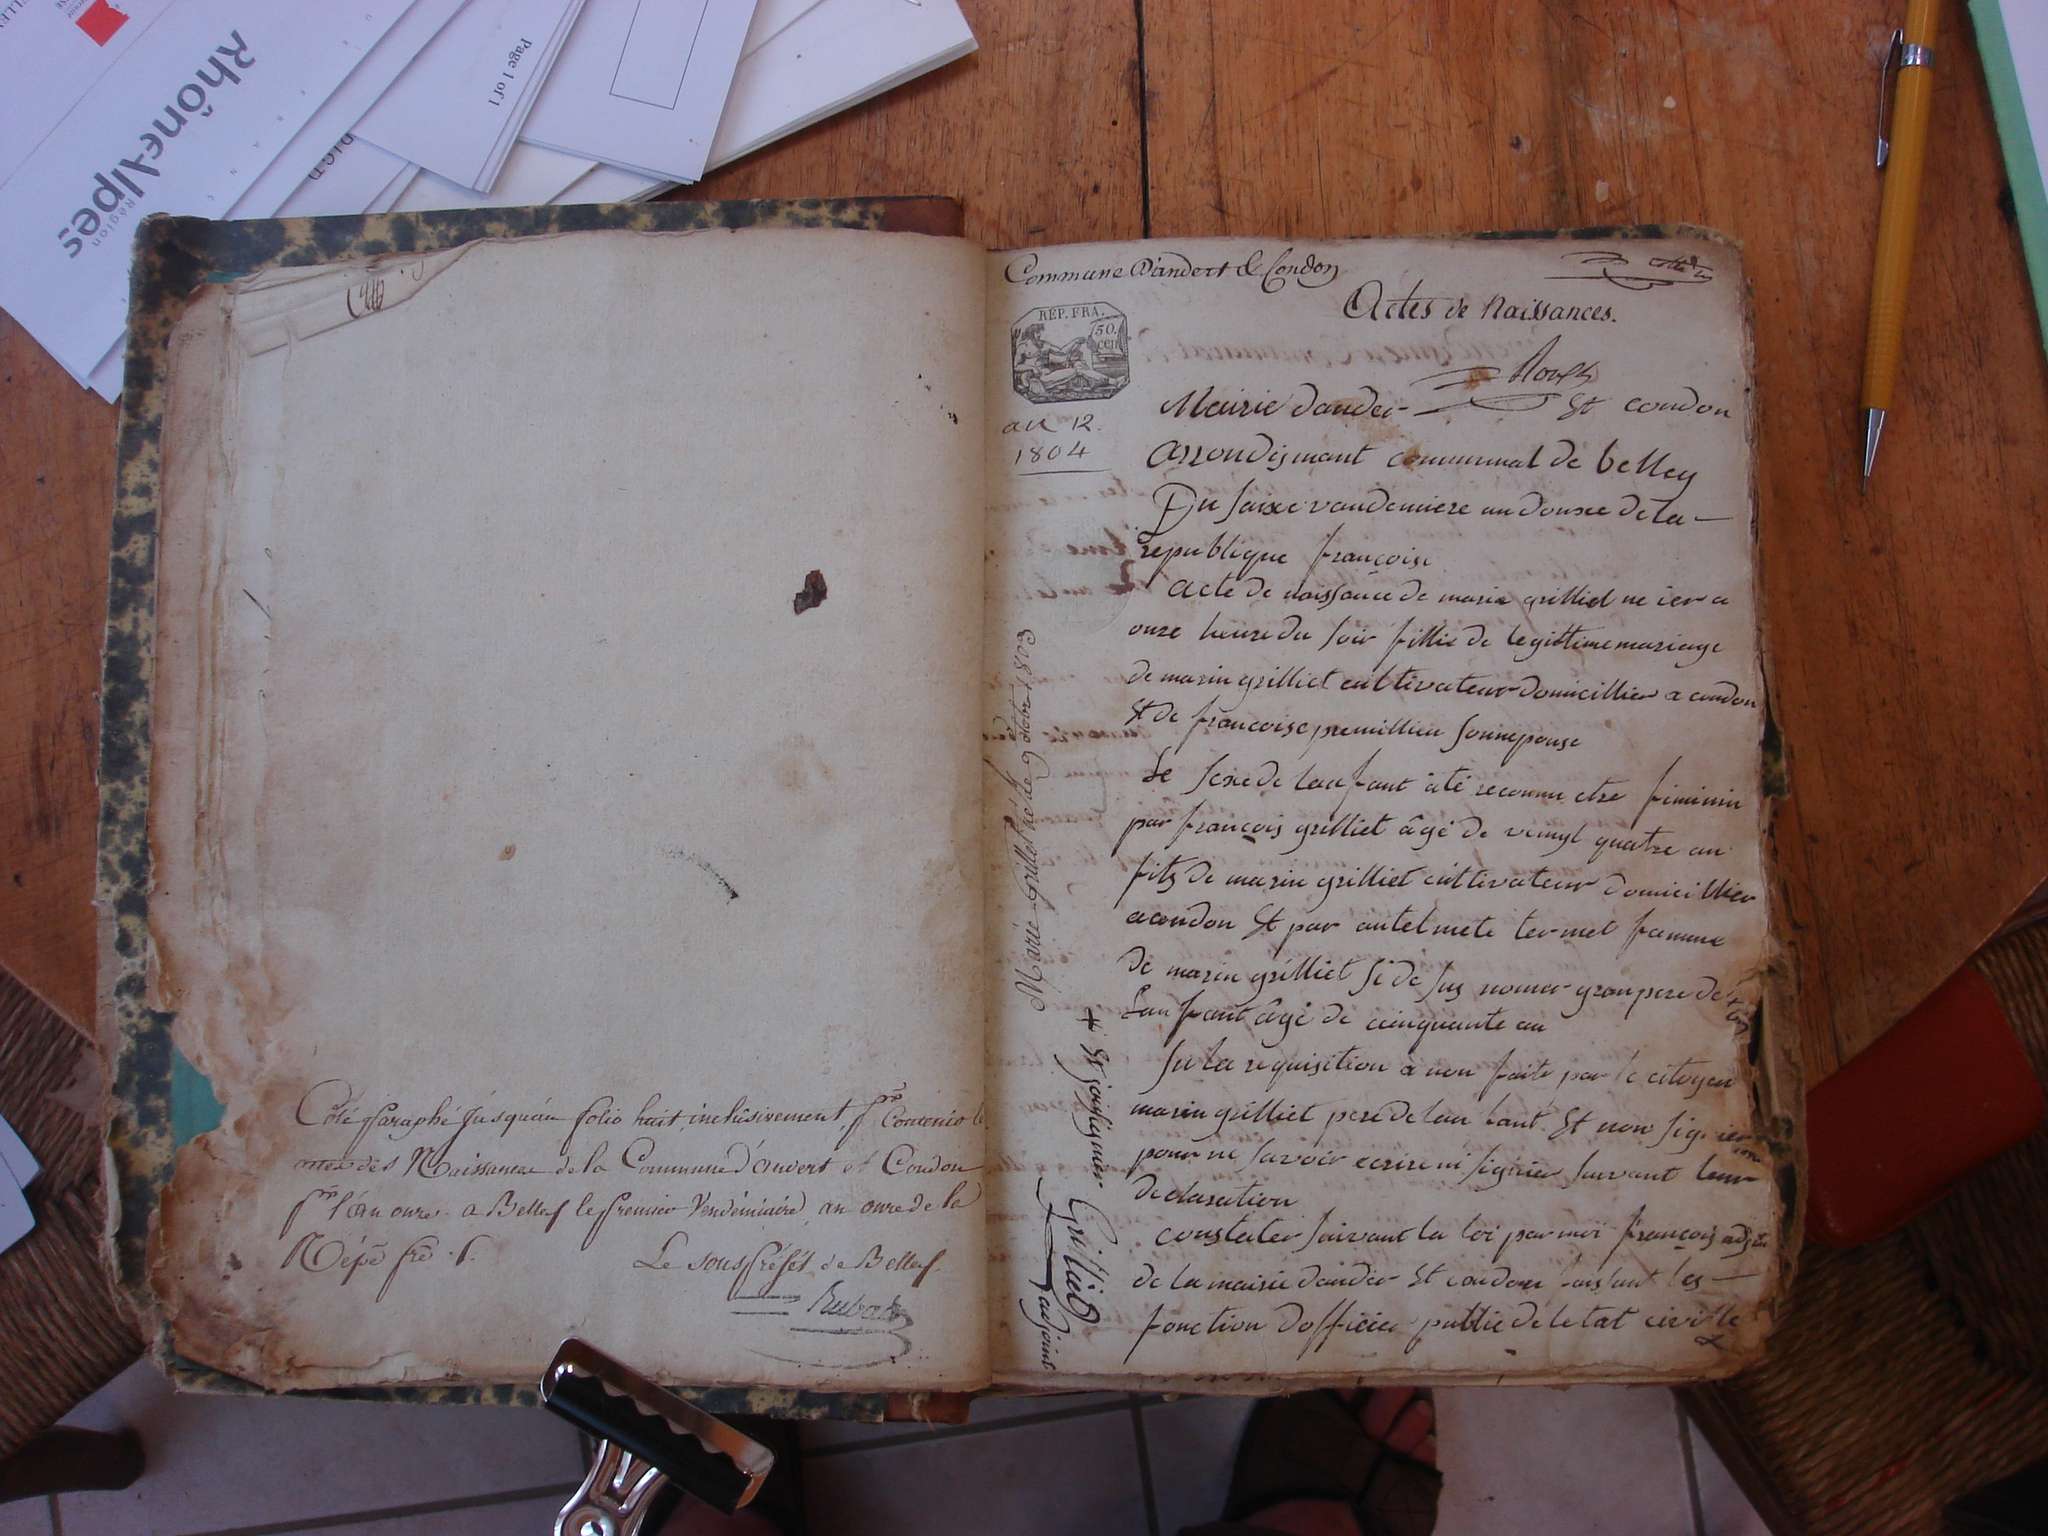 RhôneAlpes
Région
Page 1 of 1
Coté & Paraphé jusqu'au folio huit inclusivement, pr Contenir le
des Naissances de la Commune d'Anvert et Condon
pr l'an onze. a Belley le premier Vendémiaire an onze de la
Répe fre .
Le sous préfet de Belley
Commune D'andert & Condon
Actes de Naissances.
REP. FRA.
50.
cen
an 12.
1804
Mairie dander Et condon
Arrondismant communal de belley
Du saixe vandemiere an douxe de la
republique françoise
Acte de naissance de marie grilliet ne ier a
onze heure du soir fillie de legittime mariage
de marin grilliet cultivateur domicillier a condon
Et de francoise premillieu sonnepouse
Le sexe de lanfant a été reconnu etre fiminin
par françois grilliet âgé de vennyt quatre an
fils de marin grilliet cultivateur domicillier
a condon Et par antelmete termet famme
de marin grilliet si de sus nomer granpere de
Lanfant âgé de cinquante an
Su la requisition a nou faite par le citoyen
marin grilliet pere de lanfant Et non sig
pour ne savoir ecrire ni signier suivant leur
declaration
constater suivant la loi par moi françois
de la mairie dander Et condon faisant les
fonction dofficier public de letat civille
Marie Grillet née le 9 octobre 1803
+ Et soussignier Grilliet adjoint